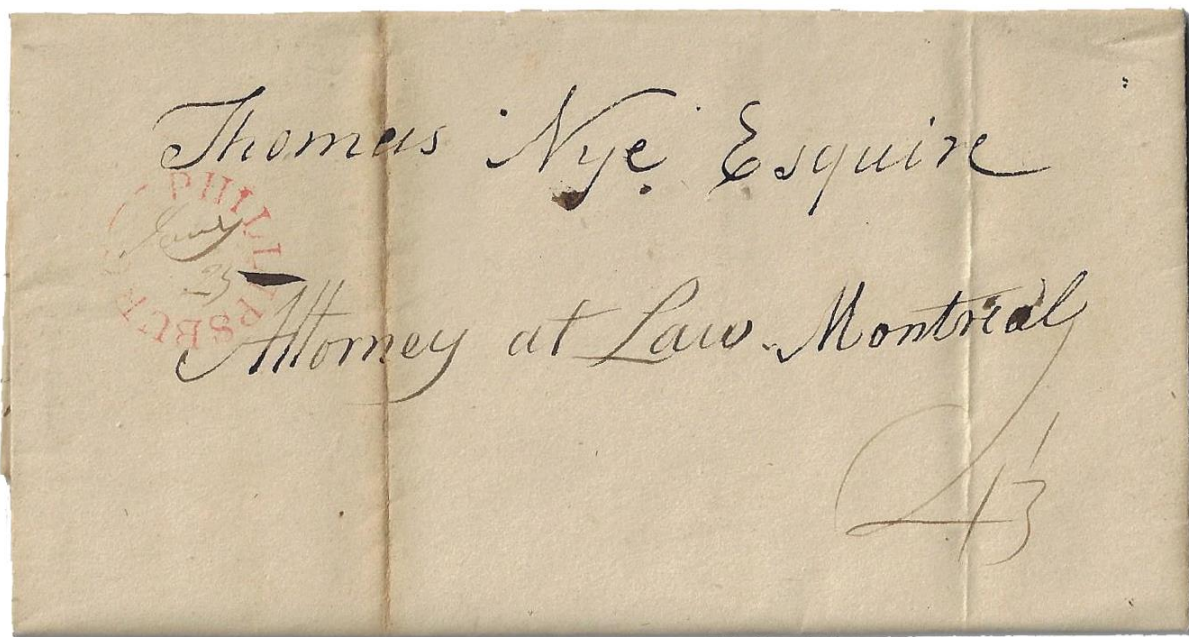 Thomas Nye Esquire
PHILLIPSBURG
Jany
25
Attorney at Law Montreal
4½